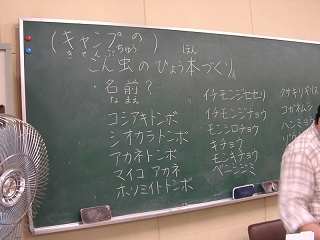 (キャンプの
きゃんぷちゅう)
こん虫のひょう本づくり
ほん
・名前?
なまえ
コシアキトンボ
シオカラトンボ
アカネトンボ
マイコアカネ
ホソミイトトンボ
イチモンジセセリ
イチモンジチョウ
モンシロチョウ
キチョウ
モンキチョウ
ベニシジミ
クサキリギリス
コガネムシ
ハンミョ